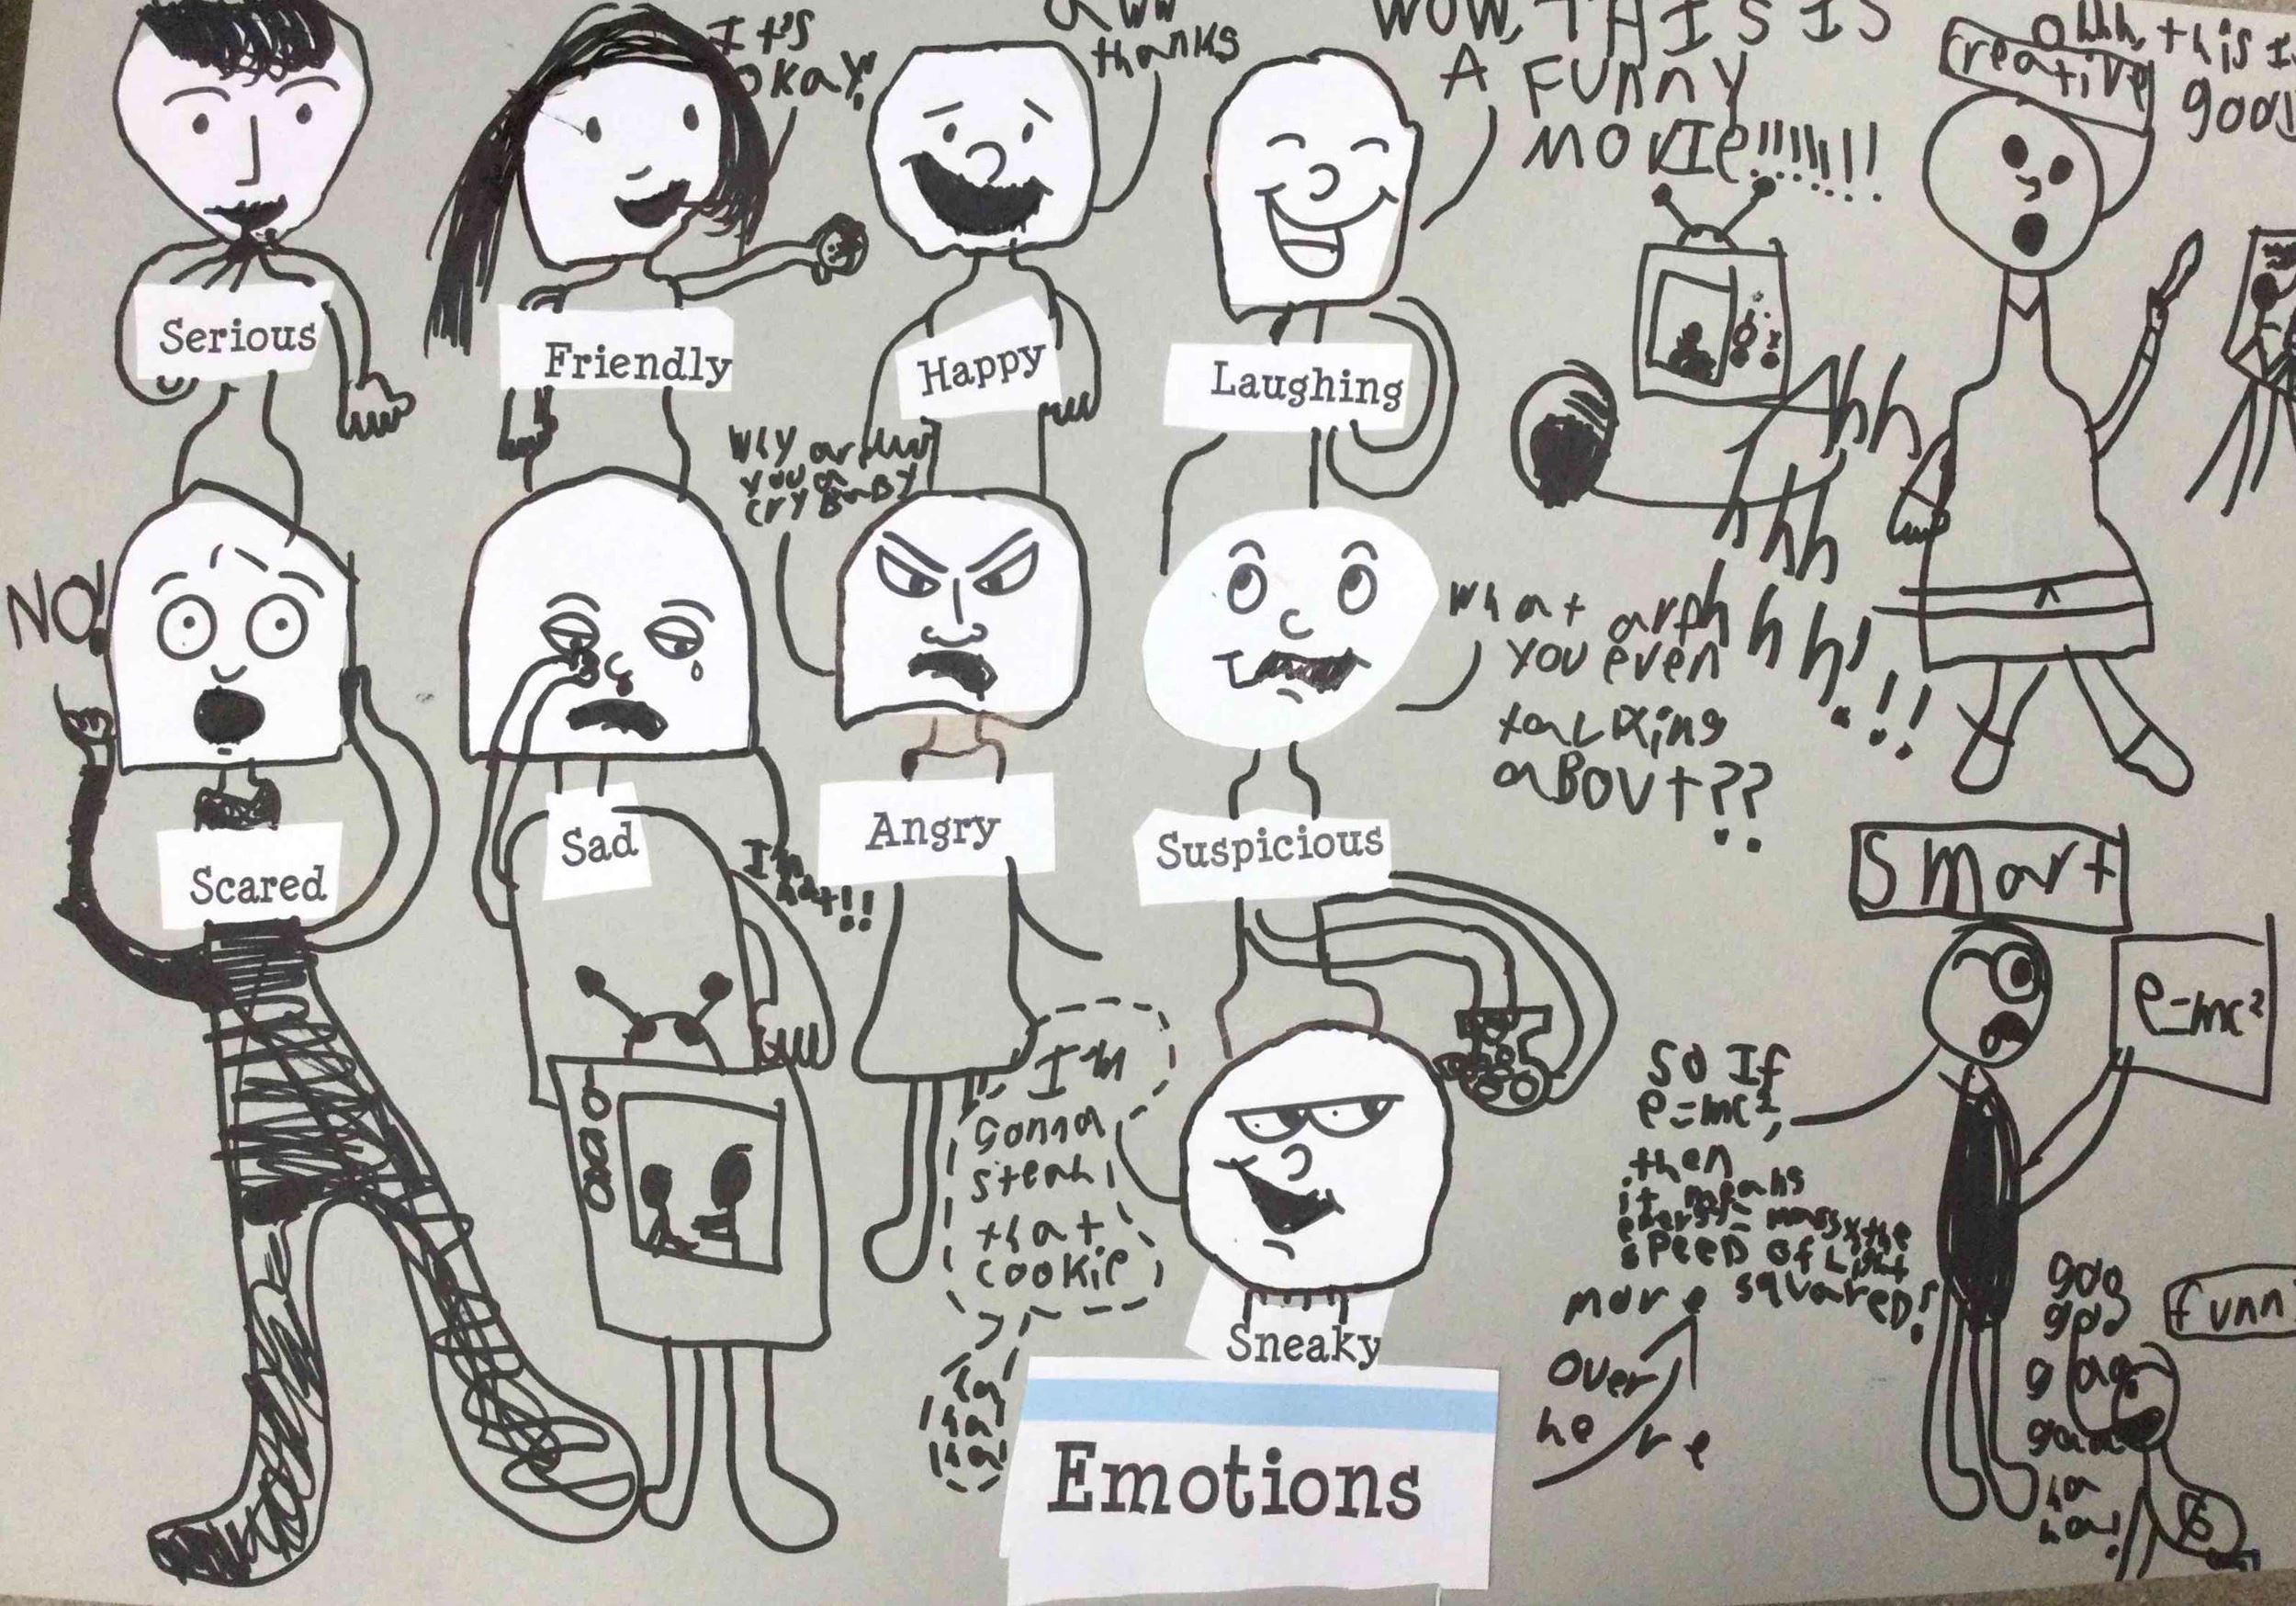 It's
okay!
aww
thanks
WOW, THIS IS
A FUNNY
MOVIE!!!!!!!
ohhh, this is
good
creative
Serious
Friendly
Happy
Laughing
hh
hhh
hhhh!
!!!
Why are
you a
cry BaBY
NO!
What are
you even
talking
aBout??
Scared
Sad
Angry
Suspicious
I'm
not!!
smart
e=mc²
So If
e=mc²,
then
it means
energy= mass x the
speed of Light
squared!
I'm
gonna
steal
that
cookie
ha
ha!
Sneaky
Emotions
more
over
here
funn
goo
goo
gaa
gaa
ha
ha!